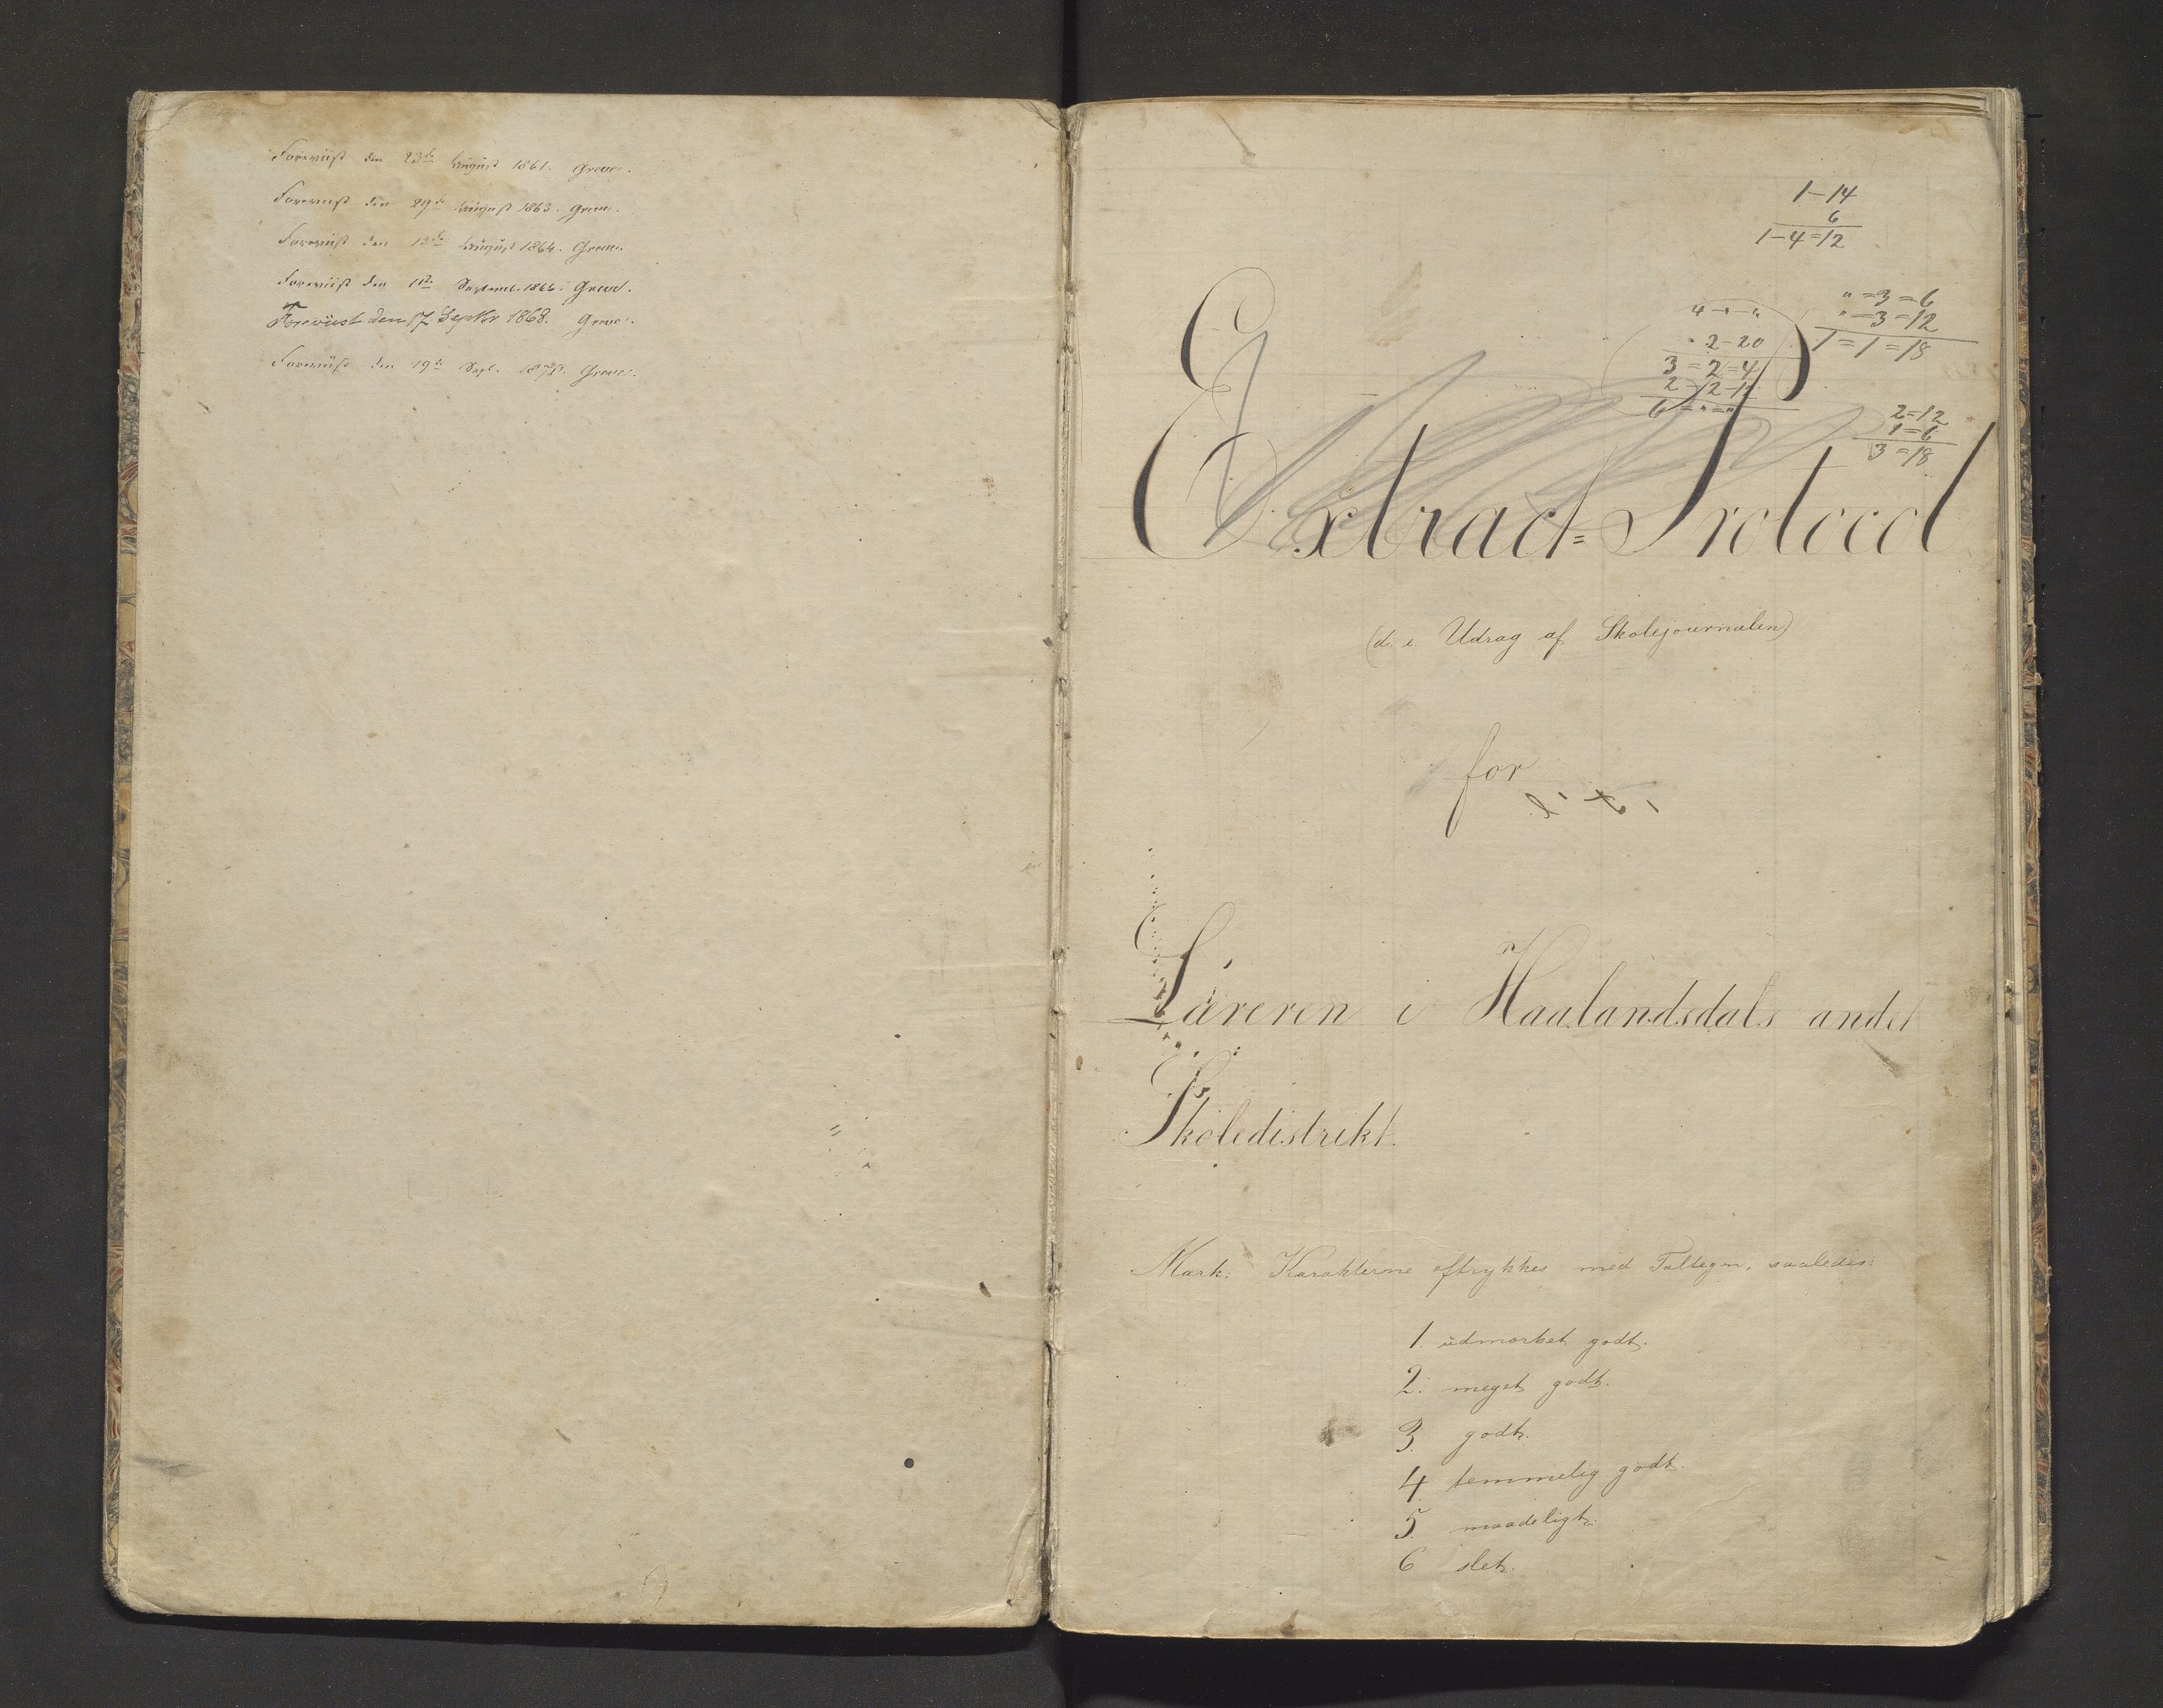 Foreviist den 23de August 1861. Greve.
Foreviist den 29de August 1863. Greve.
Foreviist den 13de August 1864. Greve.
Foreviist den 11te Septemb. 1866. Greve.
Foreviist den 17 Septbr 1868. Greve.
Foreviist den 19de Sept. Greve.
1-14
6
1-4=12
" =3 =6
" -3 =12
1=1=18
4 - " - "
" 2-20
3=2=4
2-12-12
6 = " = "
2=12
1=6
3=18
Extract=Protocol
(d. e. Udrag af Skolejournalen)
for
Læreren i Haalandsdals andet
Skoledistrikt.
Mærk: Karaktererne aftrykkes med Taltegn, saaledes:
1. udmærket godt.
2. meget godt.
3. godt.
4 temmelig godt.
5. maadeligt.
6 slet.